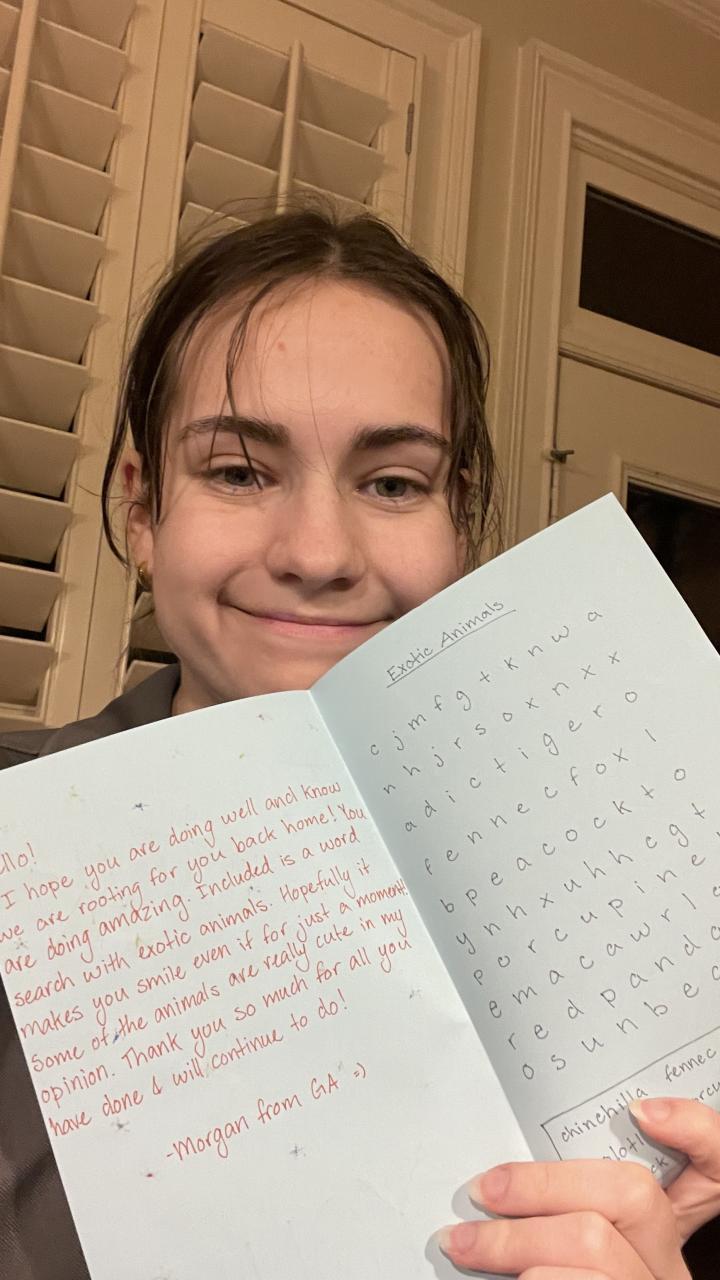 llo!
I hope you are doing well and know
we are rooting for you back home! You
are doing amazing. Included is a word
search with exotic animals. Hopefully it
makes you smile even if for just a moment!
Some of the animals are really cute in my
opinion. Thank you so much for all you
have done & will continue to do!
-Morgan from GA =)
Exotic Animals
c j m f g t k n w a
n h j r s o x n x x
a d i c t i g e r o
f e n n e c f o x l
b p e a c o c k t o
y n h x u h h c g t
p o r c u p i n e
e m a c a w r l
r e d p a n d a
o s u n b e a
chinchilla fennec